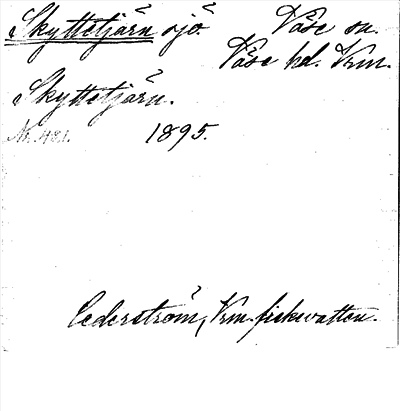 Skyttetjärn sjö. Väse sn.
Väse hd. Vrm.
Skyttetjärn.
Nr. 481. 1895.
Cederström, Vrm. fiskevatten.